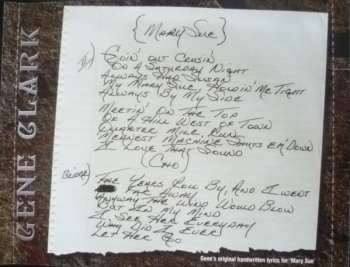 {Mary Sue}
GENE CLARK
Goin' out Cruisin
On A Saturday Night
Always Had Susan
My Mary Sue, Holdin' Me Tight
Always By My Side
Meetin' On The Top
Of A Hill West of Town
Quarter Mile, Run
Meanest Machine Shuts Em' Down
I Love That Sound
(Cho)
(Bridge)
The Years Roll By, And I went
Far Away
Anyway The Wind Would Blow
But In My Mind
I See Her Everyday
Why Did I Ever
Let Her Go
Gene's original handwritten lyrics for 'Mary Sue'